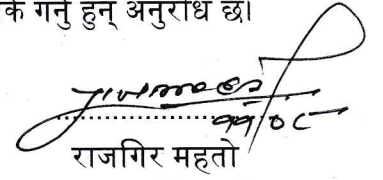 के गर्नु हुन अनुरोध छ।
११।०८
राजगिर महतो